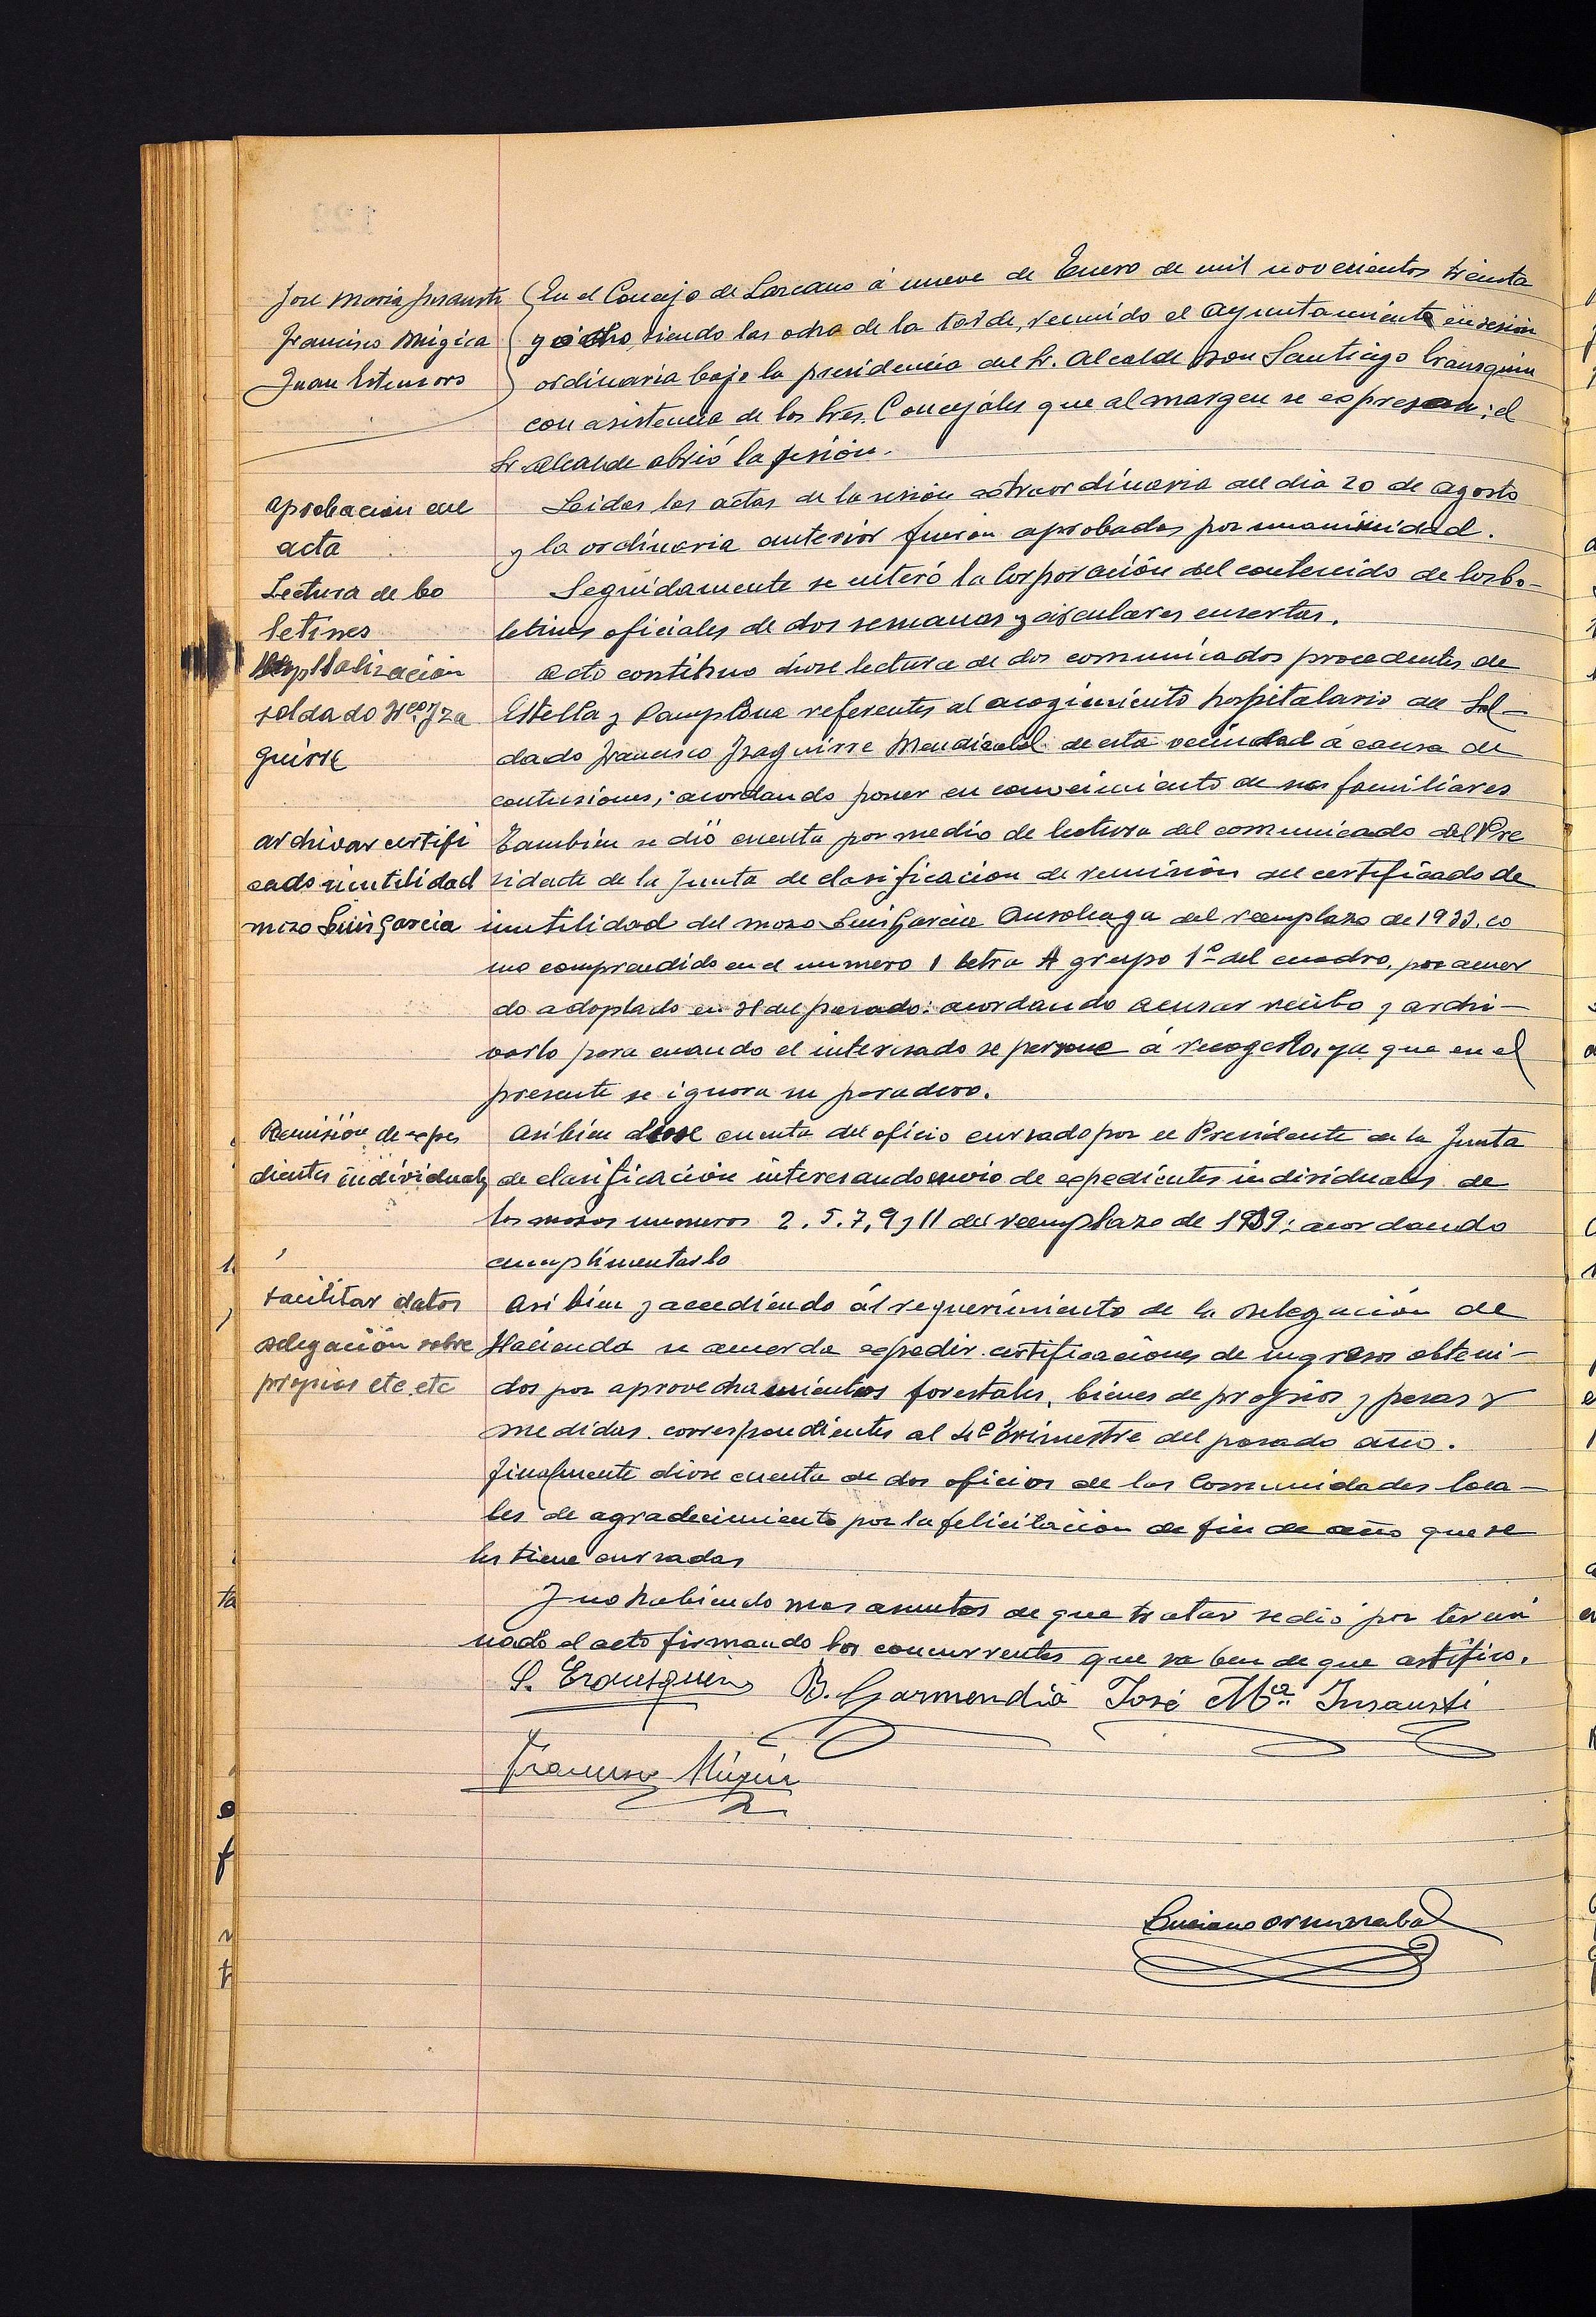 Jose Maria Insausti
Francisco Mugica
Juan Estensoro
En el Concejo de Lazcano á nueve de Enero de mil novecientos treinta
y ocho, siendo las ocho de la tarde, reunido el Ayuntamiento en sesión
ordinaria bajo la presidencia del Sr. Alcalde Don Santiago Erausquin
con asistencia de los Sres. Concejales que al margen se expresan; el
Sr. Alcalde abrió la sesión.
Aprobación del
acta
Leidas las actas de la sesión extraordinaria del dia 20 de Agosto
y la ordinaria anterior fueron aprobadas por unanimidad.
Lectura de bo
letines
Seguidamente se enteró la Corporación del contenido de los bo-
letines oficiales de dos semanas y circulares ensertas.
Hospitalización
soldado Fco Iza
guirre
Acto contínuo diose lectura de dos comunicados procedentes de
Estella y Pamplona referentes al acogimiento hospitalario del Sol-
dado Francisco Izaguirre Mendizabal de esta vecindad á causa de
contusiones; acordando poner en conocimiento de sus familiares
Archivar certifi
cado inutilidad
mozo Luis Garcia
Tambien se dió cuenta por medio de lectura del comunicado del Pre
sidente de la Junta de clasificacion de remisión del certificado de
inutilidad del mozo Luis Garcia Ansoleaga del reemplazo de 1933, co
mo comprendido en el numero 1 letra A grupo 1º del cuadro, por acuer
do adoptado en 31 del pasado: acordando acusar recibo y archi-
varlo para cuando el interesado se persone á recogerlo, ya que en el
presente se ignora su paradero.
Remisión de expe
dientes individuales
Asi bien diose cuenta del oficio cursado por el Presidente de la Junta
de clasificación interesando envio de expedientes individuales de
los mozos numeros 2. 5. 7, 9 y 11 del reemplazo de 1939; acordando
cumplimentarlo
Facilitar datos
Delegación sobre
propios etc etc
Asi bien y accediendo al requerimiento de la Delegación de
Hacienda se acuerda expedir certificaciones de ingresos obteni-
dos por aprovechamientos forestales, bienes de propios y pesas y
medidas correspondientes al 4º trimestre del pasado año.
Finalmente diose cuenta de dos oficios de las Comunidades loca-
les de agradecimiento por la felicitacion de fin de año que se
les tiene cursadas
Y no habiendo mas asuntos de que tratar se dió por termi
nado el acto firmando los concurrentes que saben de que certifico.
S. Erausquin B. Garmendia José Mª Insausti
Francisco Múgica
Luciano Ormazabal